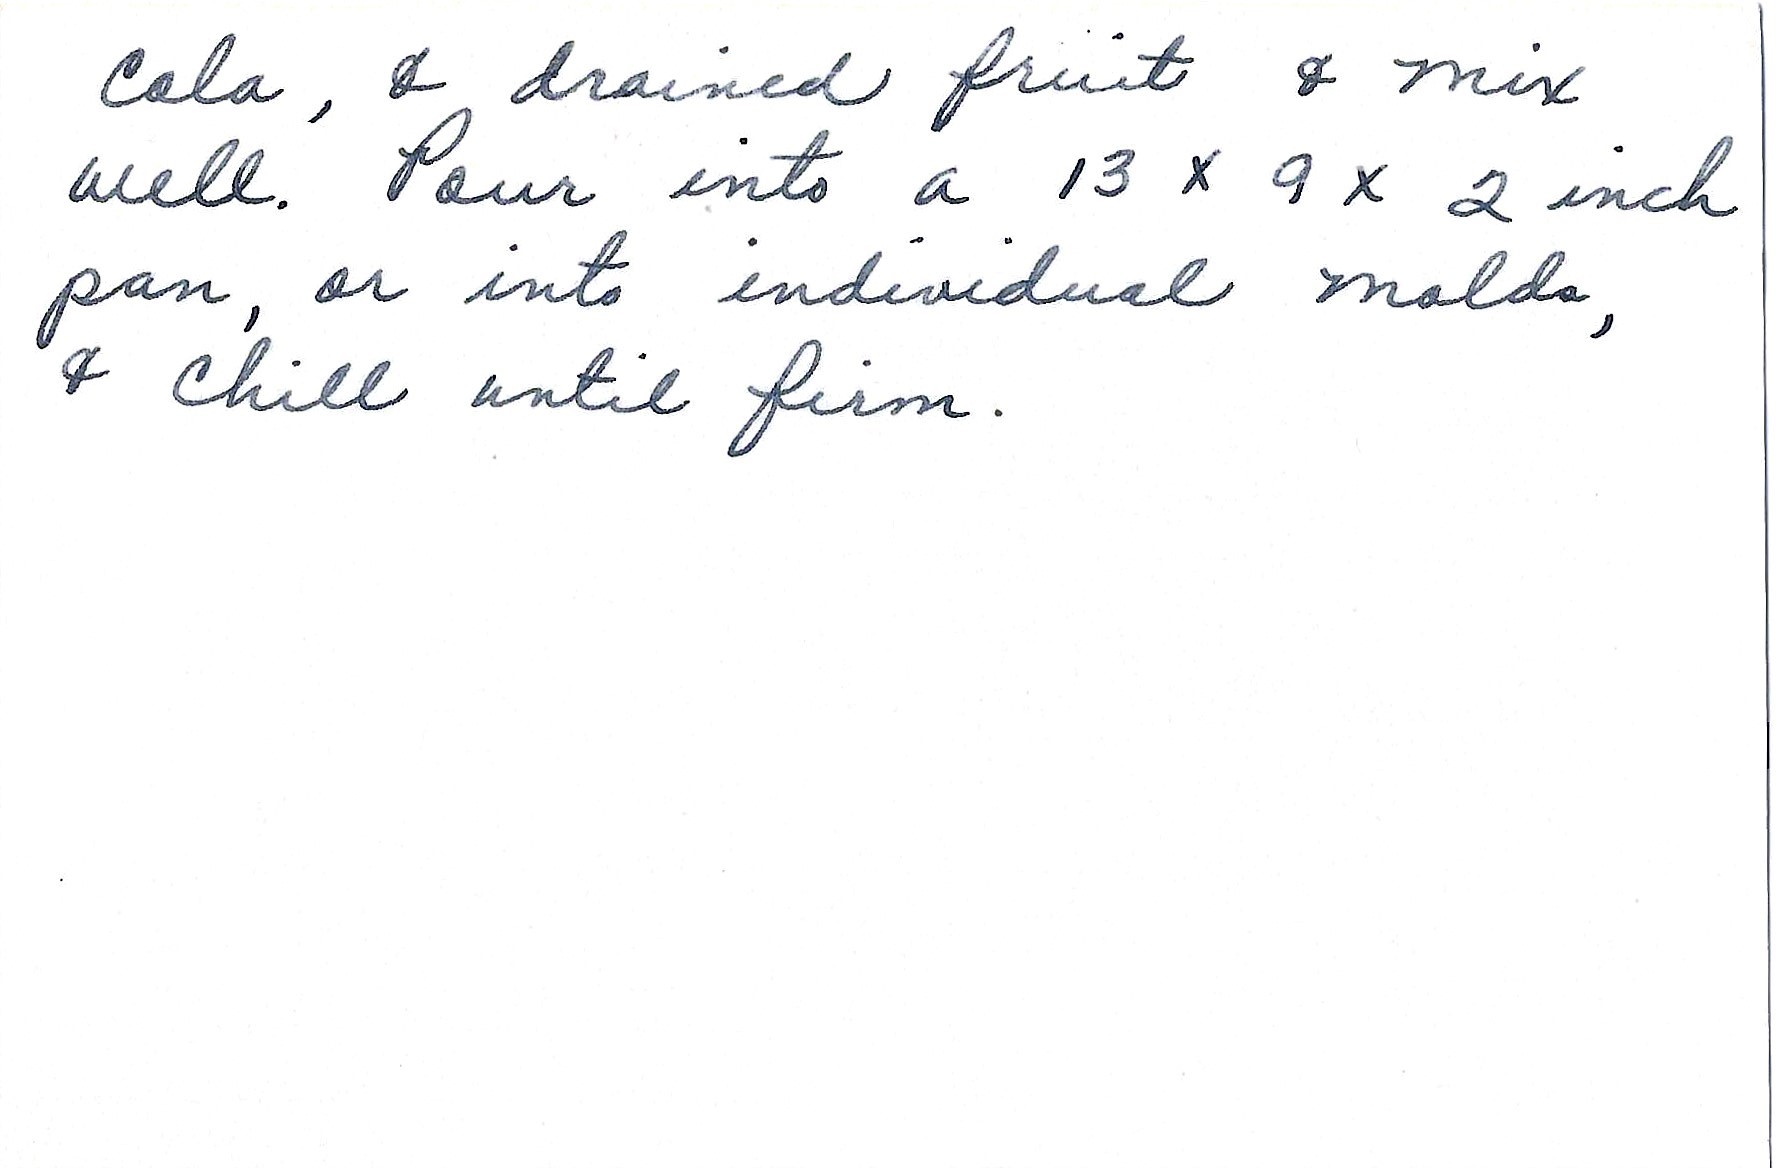 cola, & drained fruit & mix
well. Pour into a 13 x 9 x 2 inch
pan, or into individual molds,
& chill until firm.